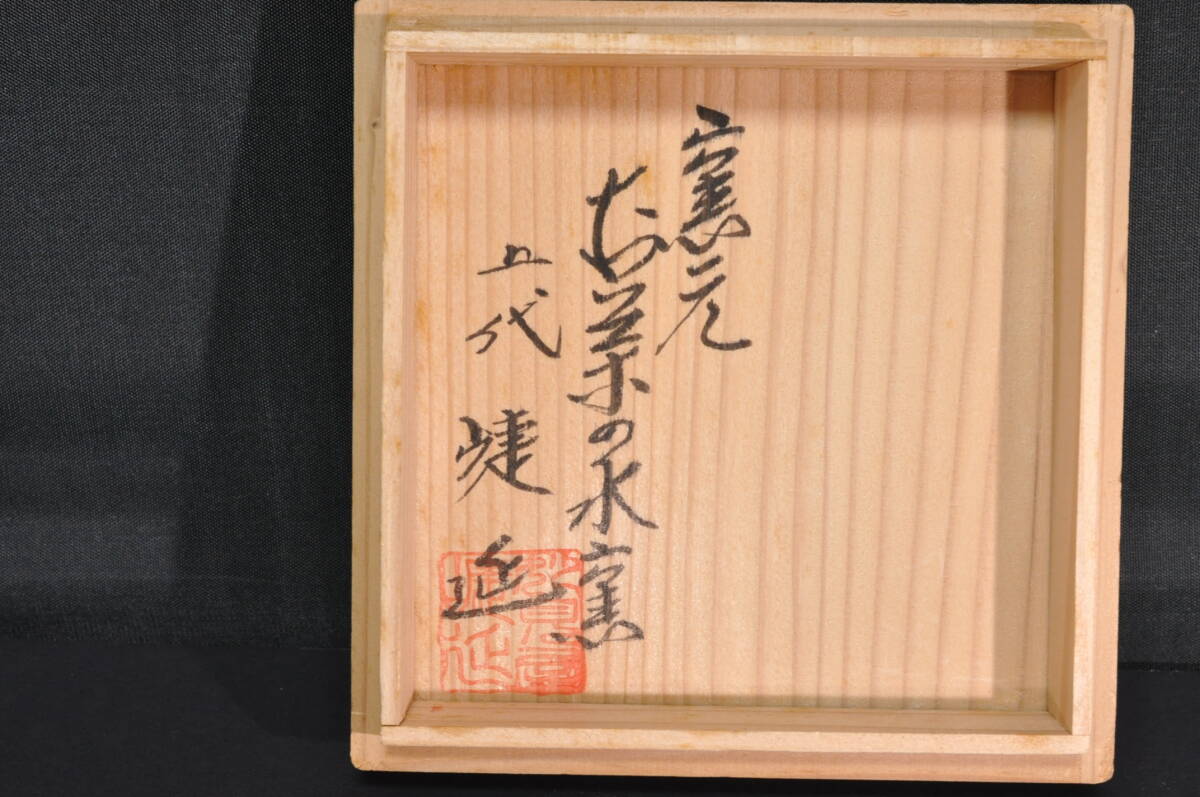 窯元
お茶の水窯
五代 健延